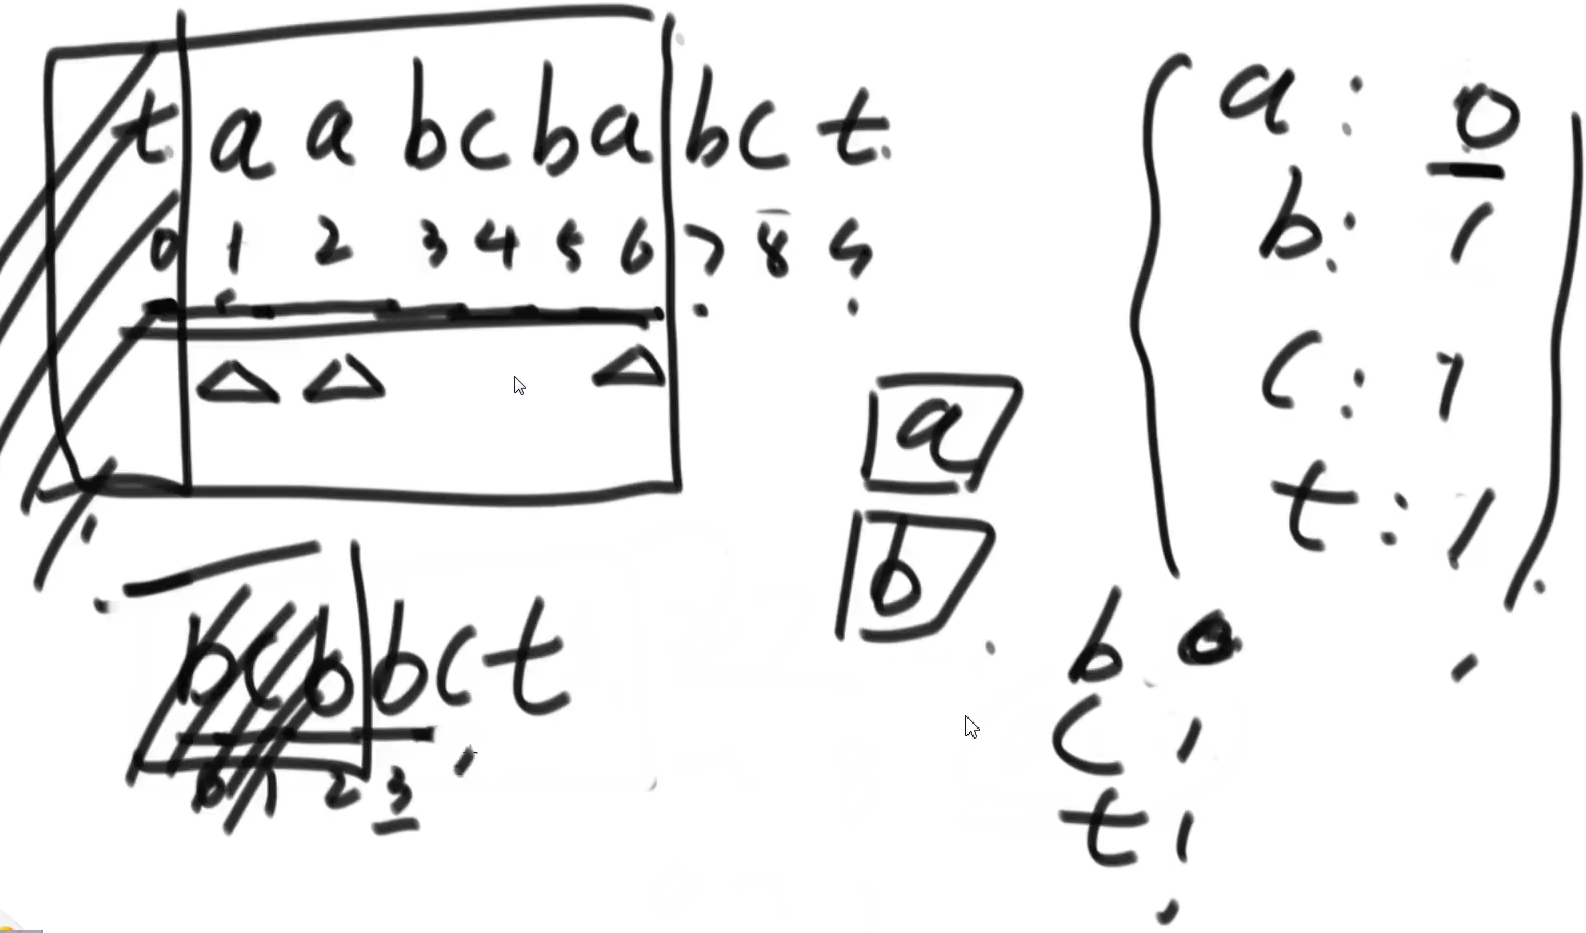 t a a b c b a b c t
0 1 2 3 4 5 6 7 8 9
b c b b c t
0 1 2 3
a
b
a: 0
b: 1
c: 1
t: 1
b 0
c 1
t 1